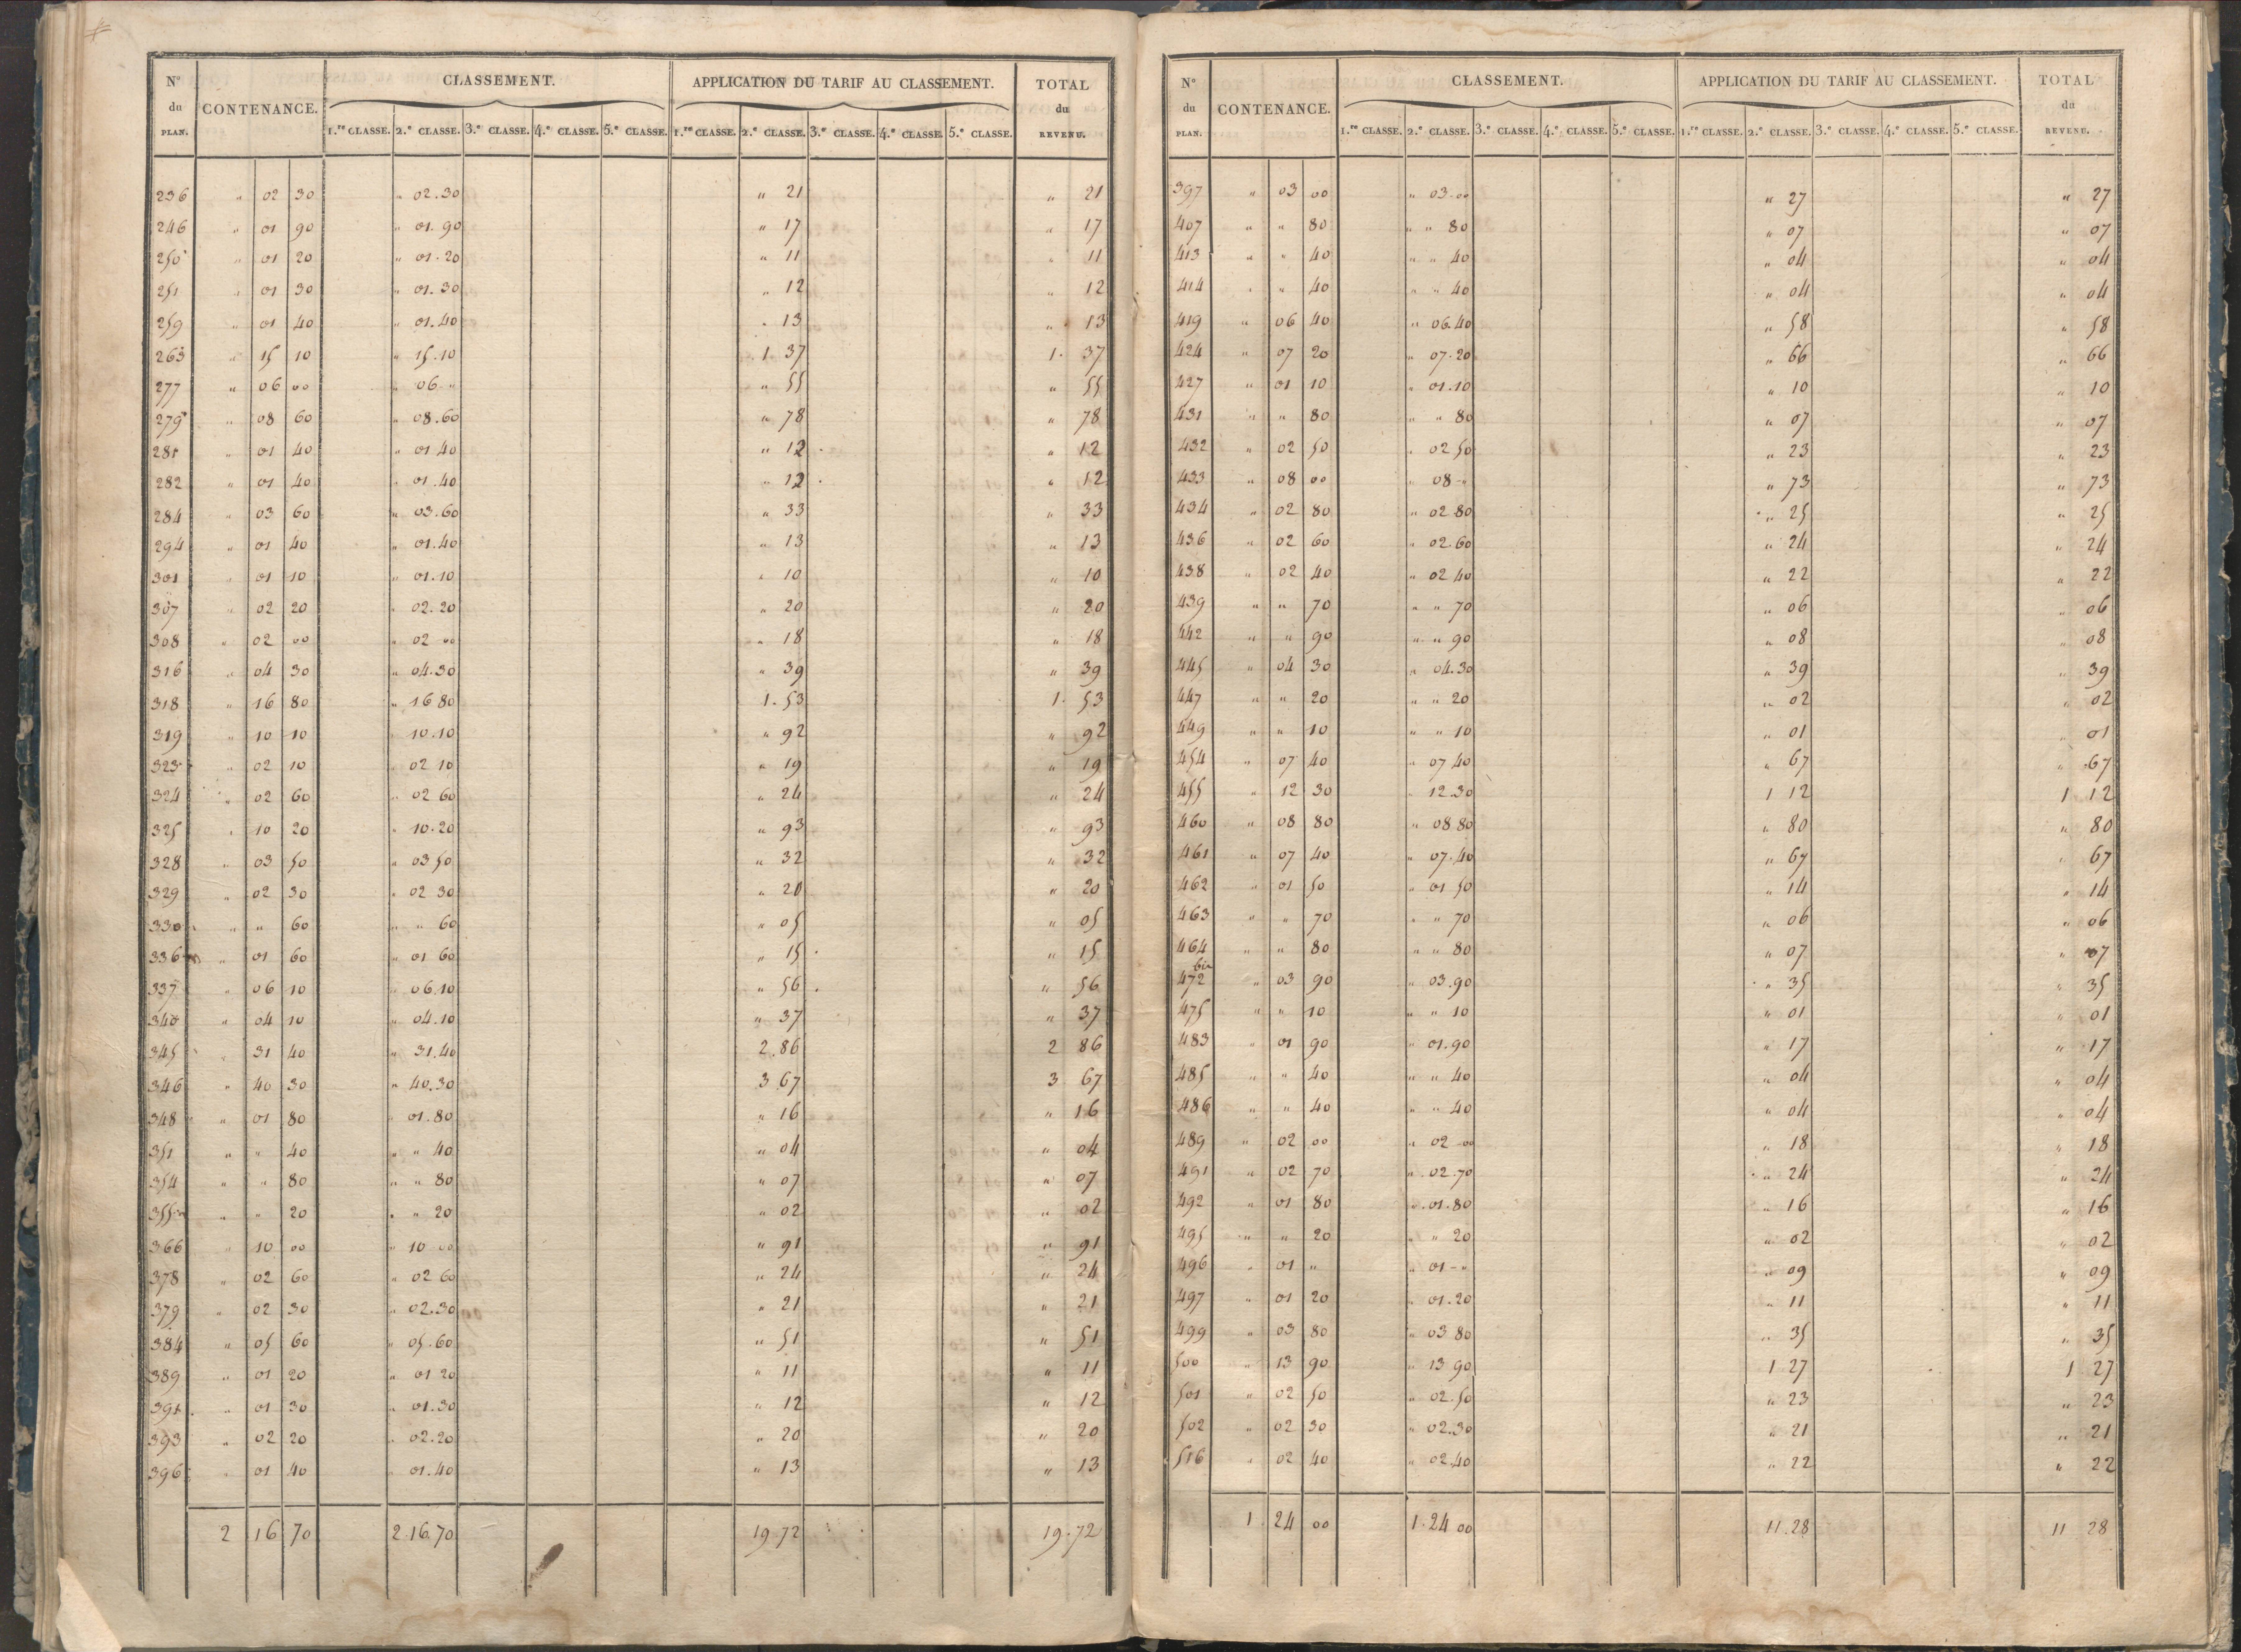 N.º du PLAN. CONTENANCE. CLASSEMENT. APPLICATION DU TARIF AU CLASSEMENT. TOTAL du REVENU.
1.re CLASSE. 2.e CLASSE. 3.e CLASSE. 4.e CLASSE. 5.e CLASSE. 1.re CLASSE. 2.e CLASSE. 3.e CLASSE. 4.e CLASSE. 5.e CLASSE.
236 " 02 30 " 02.30 " 21 " 21
246 " 01 90 " 01.90 " 17 " 17
250 " 01 20 " 01.20 " 11 " 11
251 " 01 30 " 01.30 " 12 " 12
259 " 01 40 " 01.40 " 13 " 13
263 " 15 10 " 15.10 1. 37 1. 37
277 " 06 00 " 06. " " 55 " 55
279 " 08 60 " 08.60 " 78 " 78
281 " 01 40 " 01 40 " 12 " 12
282 " 01 40 " 01.40 " 12 " 12
284 " 03 60 " 03.60 " 33 " 33
294 " 01 40 " 01.40 " 13 " 13
301 " 01 10 " 01.10 " 10 " 10
307 " 02 20 " 02.20 " 20 " 20
308 " 02 00 " 02 00 " 18 " 18
316 " 04 30 " 04.30 " 39 " 39
318 " 16 80 " 16 80 1. 53 1. 53
319 " 10 10 " 10.10 " 92 " 92
323 " 02 10 " 02 10 " 19 " 19
324 " 02 60 " 02 60 " 24 " 24
325 " 10 20 " 10.20 " 93 " 93
328 " 03 50 " 03 50 " 32 " 32
329 " 02 30 " 02 30 " 20 " 20
330 " " 60 " " 60 " 05 " 05
336 " 01 60 " 01 60 " 15 " 15
337 " 06 10 " 06.10 " 56 " 56
340 " 04 10 " 04.10 " 37 " 37
345 " 31 40 " 31.40 2.86 2 86
346 " 40 30 " 40.30 3 67 3 67
348 " 01 80 " 01.80 " 16 " 16
351 " " 40 " " 40 " 04 " 04
354 " " 80 " " 80 " 07 " 07
355 " " 20 " " 20 " 02 " 02
366 " 10 00 " 10 00 " 91 " 91
378 " 02 60 " 02 60 " 24 " 24
379 " 02 30 " 02.30 " 21 " 21
384 " 05 60 " 05.60 " 51 " 51
389 " 01 20 " 01 20 " 11 " 11
391 " 01 30 " 01.30 " 12 " 12
393 " 02 20 " 02.20 " 20 " 20
396 " 01 40 " 01.40 " 13 " 13
2 16 70 2.16.70 19.72 19.72
N.º du PLAN. CONTENANCE. CLASSEMENT. APPLICATION DU TARIF AU CLASSEMENT. TOTAL du REVENU.
1.re CLASSE. 2.e CLASSE. 3.e CLASSE. 4.e CLASSE. 5.e CLASSE. 1.re CLASSE. 2.e CLASSE. 3.e CLASSE. 4.e CLASSE. 5.e CLASSE.
397 " 03 00 " 03.00 " 27 " 27
407 " " 80 " " 80 " 07 " 07
413 " " 40 " " 40 " 04 " 04
414 " " 40 " " 40 " 04 " 04
419 " 06 40 " 06.40 " 58 " 58
424 " 07 20 " 07.20 " 66 " 66
427 " 01 10 " 01.10 " 10 " 10
431 " " 80 " " 80 " 07 " 07
432 " 02 50 " 02 50 " 23 " 23
433 " 08 00 " 08 " " 73 " 73
434 " 02 80 " 02 80 " 25 " 25
436 " 02 60 " 02.60 " 24 " 24
438 " 02 40 " 02 40 " 22 " 22
439 " " 70 " " 70 " 06 " 06
442 " " 90 " " 90 " 08 " 08
445 " 04 30 " 04.30 " 39 " 39
447 " " 20 " " 20 " 02 " 02
449 " " 10 " " 10 " 01 " 01
454 " 07 40 " 07 40 " 67 " 67
455 " 12 30 " 12.30 1 12 1 12
460 " 08 80 " 08 80 " 80 " 80
461 " 07 40 " 07.40 " 67 " 67
462 " 01 50 " 01 50 " 14 " 14
463 " " 70 " " 70 " 06 " 06
464 " " 80 " " 80 " 07 " 07
472 bis " 03 90 " 03.90 " 35 " 35
475 " " 10 " " 10 " 01 " 01
483 " 01 90 " 01.90 " 17 " 17
485 " " 40 " " 40 " 04 " 04
486 " " 40 " " 40 " 04 " 04
489 " 02 00 " 02 00 " 18 " 18
491 " 02 70 " 02.70 " 24 " 24
492 " 01 80 " 01.80 " 16 " 16
495 " " 20 " " 20 " 02 " 02
496 " 01 " " 01 - " " 09 " 09
497 " 01 20 " 01.20 " 11 " 11
499 " 03 80 " 03 80 " 35 " 35
500 " 13 90 " 13 90 1 27 1 27
501 " 02 50 " 02.50 " 23 " 23
502 " 02 30 " 02.30 " 21 " 21
516 " 02 40 " 02.40 " 22 " 22
1 24 00 1.24 00 11.28 11 28